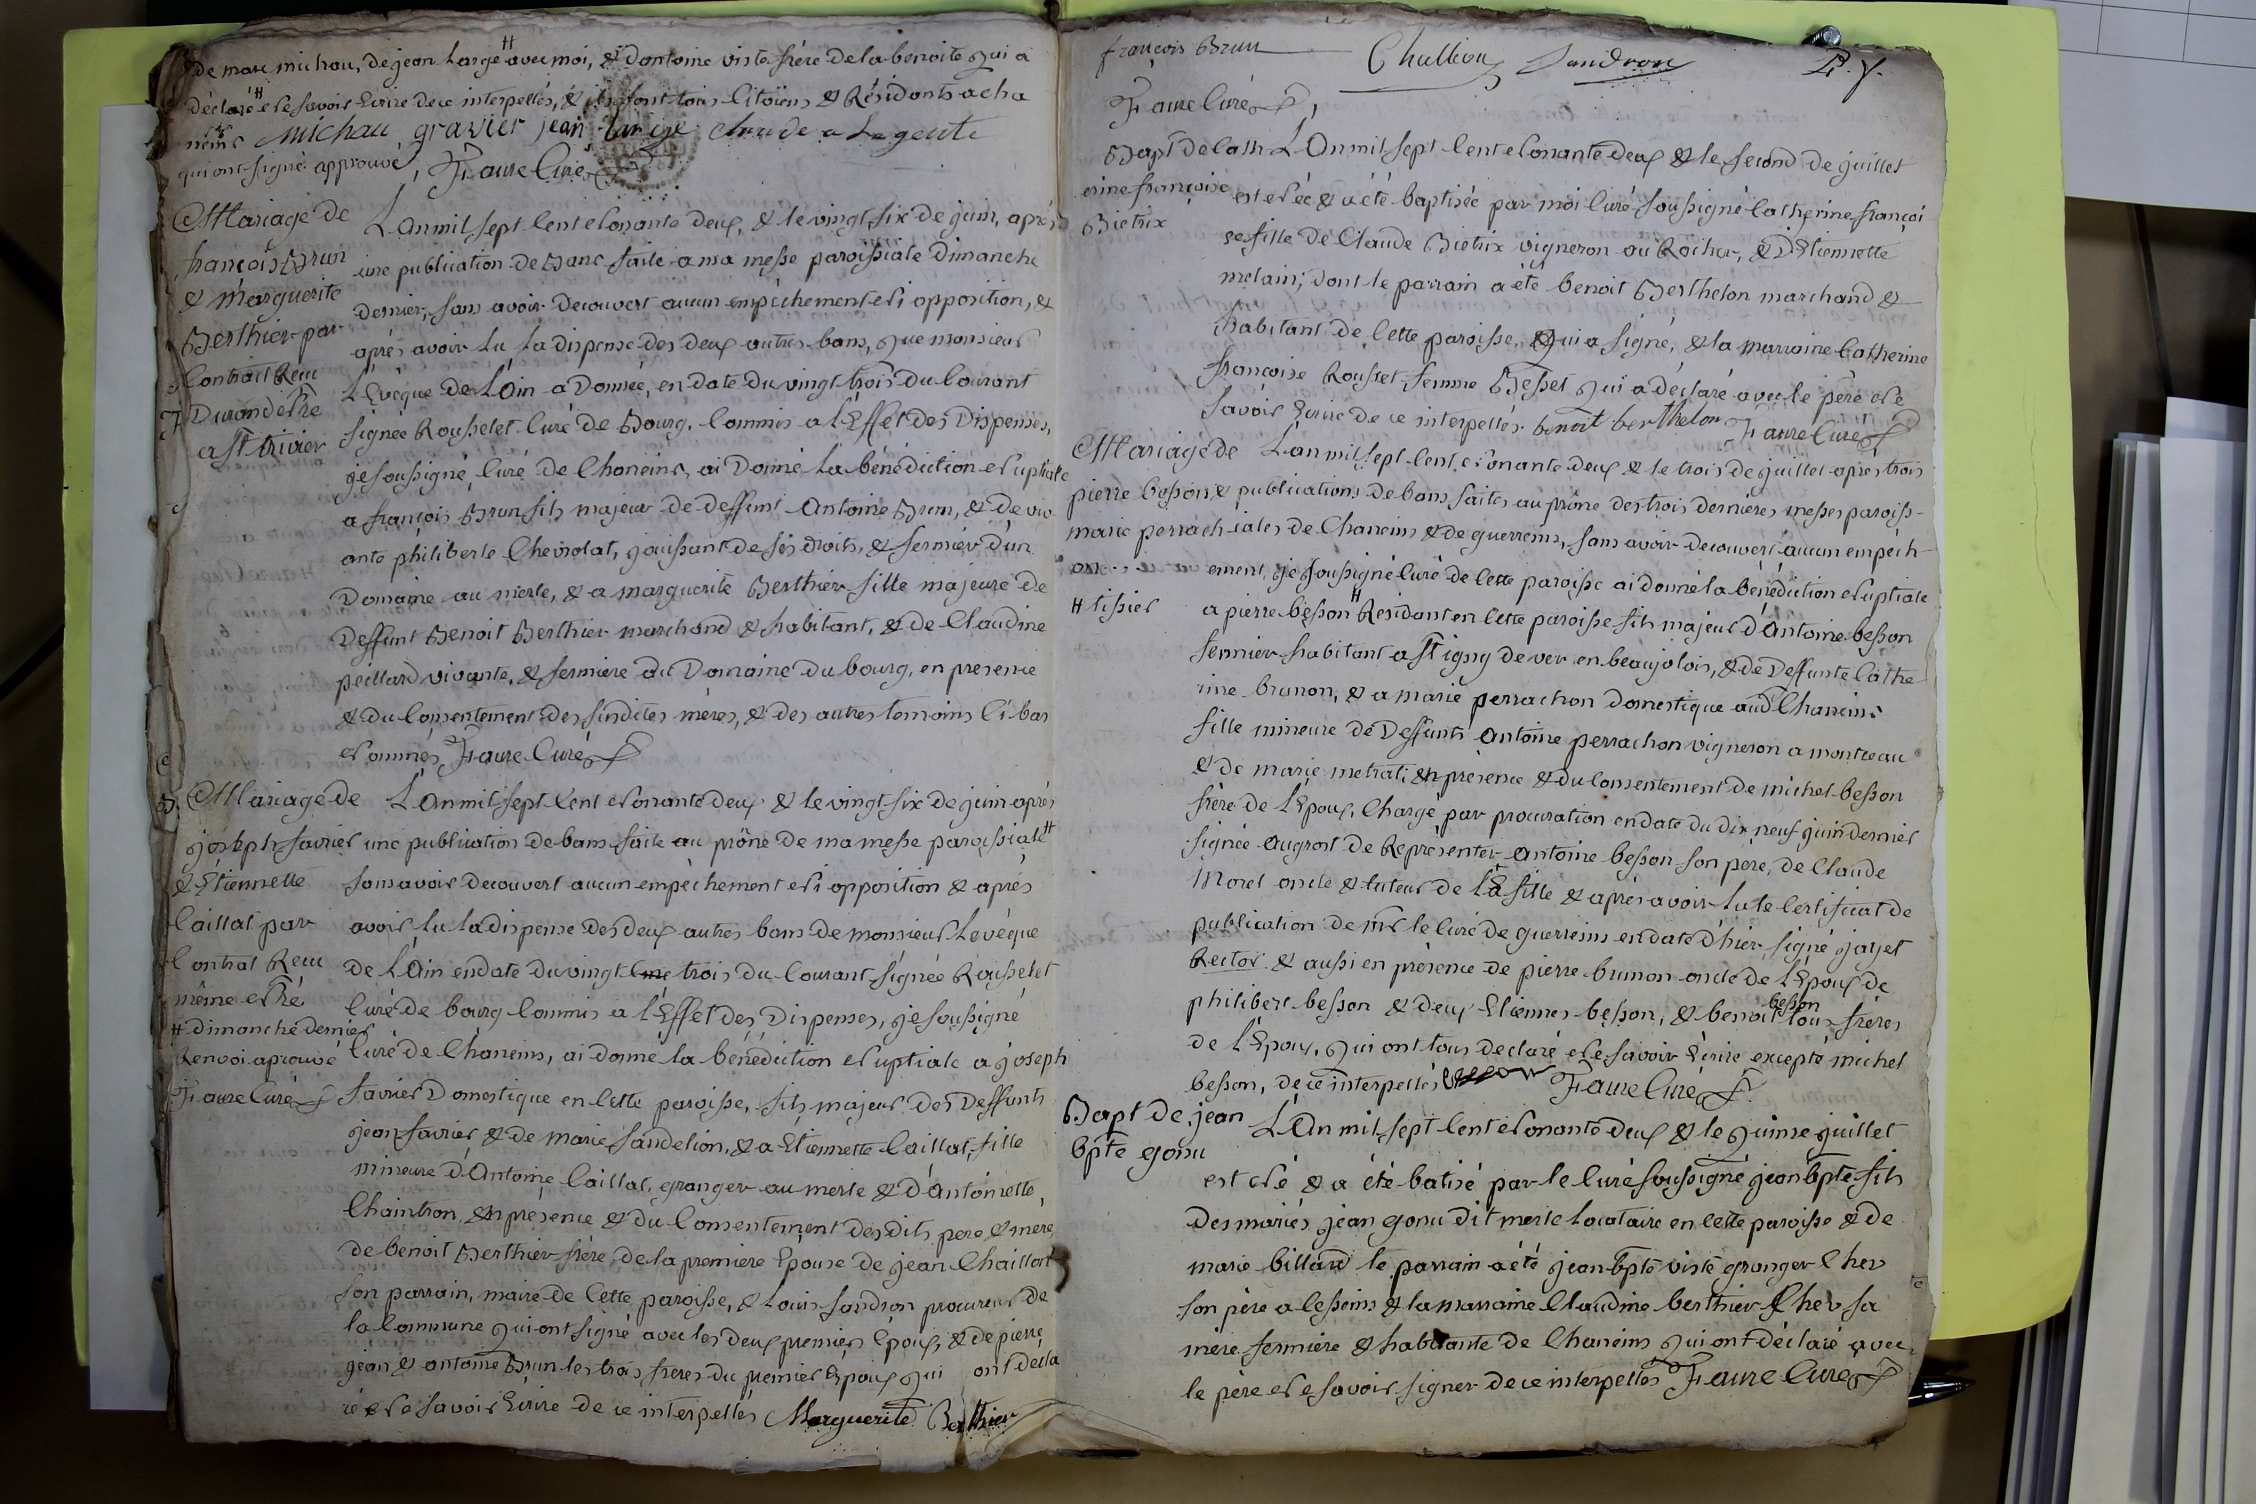 de marc michau, de jean Large # avec moi, & d'antoine viste frère de la benoite qui a
déclaré # ne savoir Ecrire de ce interpellés, & ils sont tous Citoïens & Résidents a cha
neins michau gravier jean large claude a Legente
qui ont signé approuvé, Faure Curé
Mariage de
françois Brun
& Marguerite
Berthier par
Contrait Recu
Durand Nre
a St trivier
L'an mil sept Cent nonante deux, & le vingt six de juin, après
une publication de Banc faite a ma messe paroissiale Dimanche
dernier, sans avoir decouvert aucun empêchement ni opposition, &
après avoir Lu La dispense des deux autres bans, que monsieur
L'Evêque de L'Ain a Donnée, en date du vingt trois du Courant
signée Rousselet Curé de Bourg, Commis a l'Effet des Dispenses,
je soussigné, Curé de Chaneins, ai Donné La bénédiction nuptiale
a françois Brun fils majeur de deffunt Antoine Brun, & de viv
ante philiberte Chevrolat, jouissant de ses droits, & fermier d'un
Domaine au merle, & a marguerite Berthier fille majeure de
Deffunt Benoit Berthier marchand & habitant, & de Claudine
peillard vivante, & fermiere du Domaine du bourg, en presence
& du Consentement des susdites mères, & des autres temoins Ci bas
nommés, Faure Curé
Mariage de
joseph favrier
& Etiennette
Caillat par
Contrat Recu
même Nre
# dimanche dernier
Renvoi aprouvé
Faure Curé
L'An mil sept Cent nonante deux & le vingt six de juin après
une publication de bans faite au prône de ma messe paroissiale #
sans avoir decouvert aucun empêchement ni opposition & après
avoir lu la dispense des deux autres bans de monsieur Levêque
de L'Ain en date du vingt trois du Courant signée Rousselet
Curé de bourg Commis a l'Effet des Dispenses, je soussigné
Curé de Chaneins, ai donné la bénédiction nuptiale a joseph
favrier Domestique en Cette paroisse, fils majeur des Deffunts
jean favrier & de marie sandelion, & a Etiennette Caillat, fille
mineure d'Antoine Caillat, granger au merle & d'Antoinette
Chaintron, en présence & du Consentement des dits pere & mère
de benoit Berthier frère de la premiere Epouse de jean Chaillot
son parrain, maire de Cette paroisse, & Louis sandron procureur de
la Commune qui ont signé avec les deux premiers Epoux, & de pierre
jean & antoine Brun les trois freres du premier Epoux qui ont décla
ré ne savoir Ecrire de ce interpellés Marguerite Berthier
françois Brun Sandron
Faure Curé
Bapt de Cath
erine françoise
Bietrix
L'An mil sept Cent nonante deux & le second de juillet
est née & a été baptisée par moi Curé soussigné Catherine françoi
se fille de Claude Bietrix vigneron au Rocher, & d'Etiennette
melain; dont le parrain a été benoit Berthelon marchand &
habitant de Cette paroisse, & qui a signé, & la marraine Catherine
françoise Roustet femme Besset qui a déclaré avec le père ne
savoir Ecrire de ce interpellés. benoit berthelon Faure Curé
Mariage de
pierre besson &
marie perrach
on...
# tissier
L'an mil sept Cent, nonante deux & le trois de juillet après trois
publications de bans faites au prône des trois dernières messes paroiss-
iales de Chaneins & de guerreins, sans avoir decouvert aucun empêch-
ement, je soussigné Curé de Cette paroisse ai donné la bénédiction nuptiale
a pierre besson # Résidant en Cette paroisse fils majeur d'Antoine besson
fermier habitant a St igny de ver en beaujolois, & de Deffunte Cathe
rine brunon, & a marie perrachon domestique aud Chaneins
fille mineure de Deffunts Antoine perrachon vigneron a montceau
& de marie metrat; en présence & du Consentement de michel besson
frère de l'Epoux, Chargé par procuration en date du dix neuf juin dernier
signée Augrost de Représenter Antoine besson son père, de Claude
Morel oncle & tuteur de La fille & après avoir lu le Certificat de
publication de mr le Curé de guerreins en date d'hier signé jayet
Rector & aussi en présence de pierre brunon oncle de l'Epoux de
philibert besson & deux Etiennes besson, & benoit besson tous frères
de l'Epoux, qui ont tous declaré ne savoir Ecrire excepté michel
besson, de ce interpellés Faure Curé
Bapt de jean
bpte gonu
L'An mil sept Cent nonante deux & le quinze juillet
est né & a été batisé par le Curé soussigné jean bpte fils
des mariés jean gonu dit merle Locataire en Cette paroisse & de
marie billard le parrain a été jean bpte viste granger Chez
son père a Cesseins & la marraine Claudine berthier Chez sa
mère fermière & habitante de Chaneins qui ont déclaré avec
le père ne savoir signer de ce interpellés Faure Curé